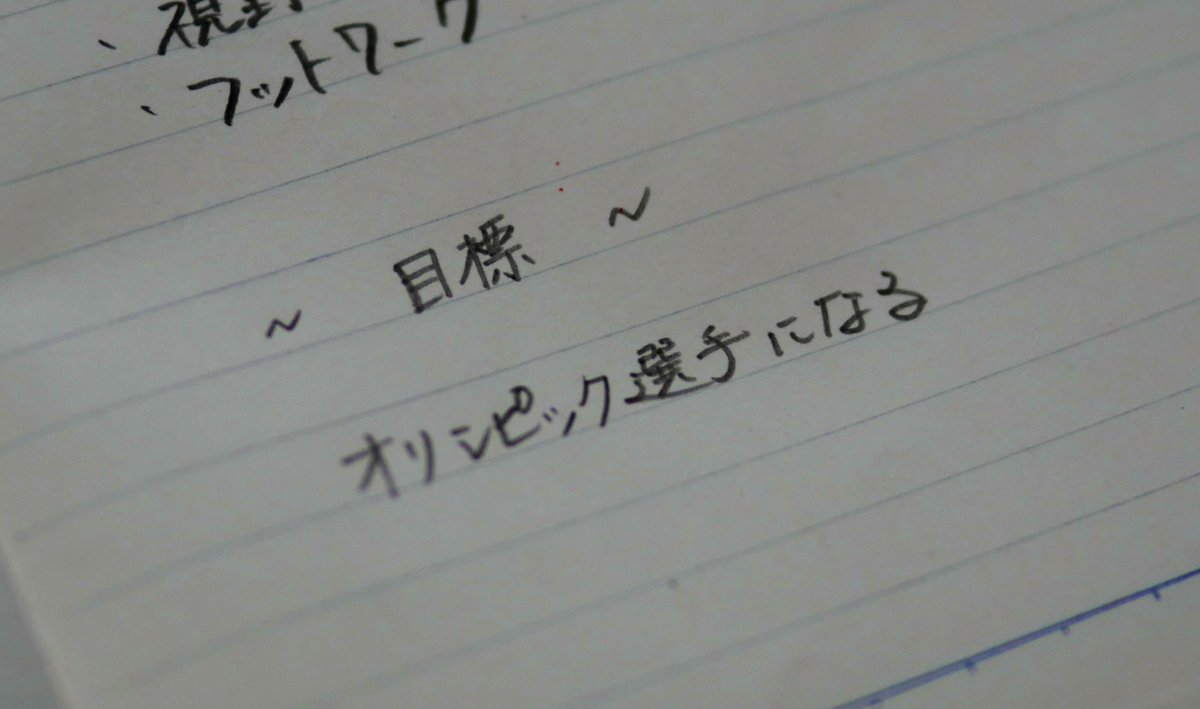 ・フットワーク
～ 目標 ～
オリンピック選手になる